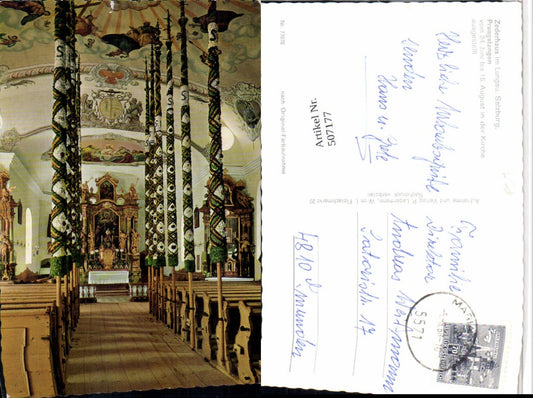 Zederhaus im Lungau, Salzburg.
Prangstangen
vom 24. Juni bis 15. August in der Kirche
ausgestellt
Nr. 7302
nach Original-Farbaufnahme
Aufnahme und Verlag P. Ledermann, Wien I, Fleischmarkt 20
Nachdruck verboten
Artikel Nr.
507177
Herzliche Urlaubsgrüße
senden
Hans u.
Familie
Direktor
Andreas
17
4810 Gmunden
5571